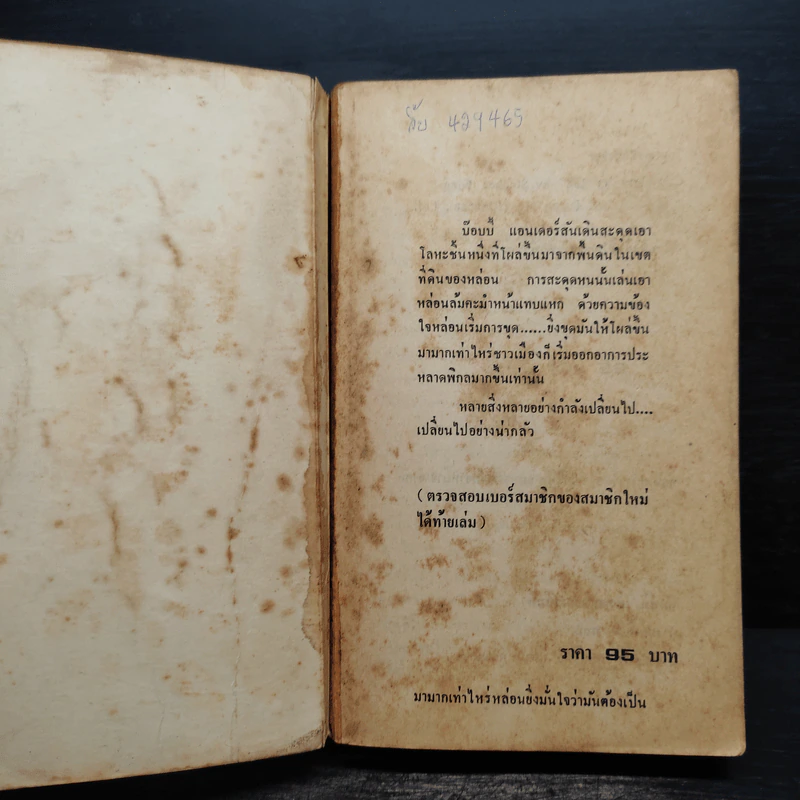 ลัย 429465
บ๊อบบี้ แอนเดอร์สันเดินสะดุดเอา
โลหะชิ้นหนึ่งที่โผล่ขึ้นมาจากพื้นดินในเขต
ที่ดินของหล่อน การสะดุดหนนั้นเล่นเอา
หล่อนล้มคะมำหน้าแทบแหก ด้วยความข้อง
ใจหล่อนเริ่มการขุด......ยิ่งขุดมันให้โผล่ขึ้น
มามากเท่าไหร่ชาวเมืองก็เริ่มออกอาการประ
หลาดพิกลมากขึ้นเท่านั้น
หลายสิ่งหลายอย่างกำลังเปลี่ยนไป....
เปลี่ยนไปอย่างน่ากลัว
(ตรวจสอบเบอร์สมาชิกของสมาชิกใหม่
ได้ท้ายเล่ม)
ราคา 95 บาท
มามากเท่าไหร่หล่อนยิ่งมั่นใจว่ามันต้องเป็น